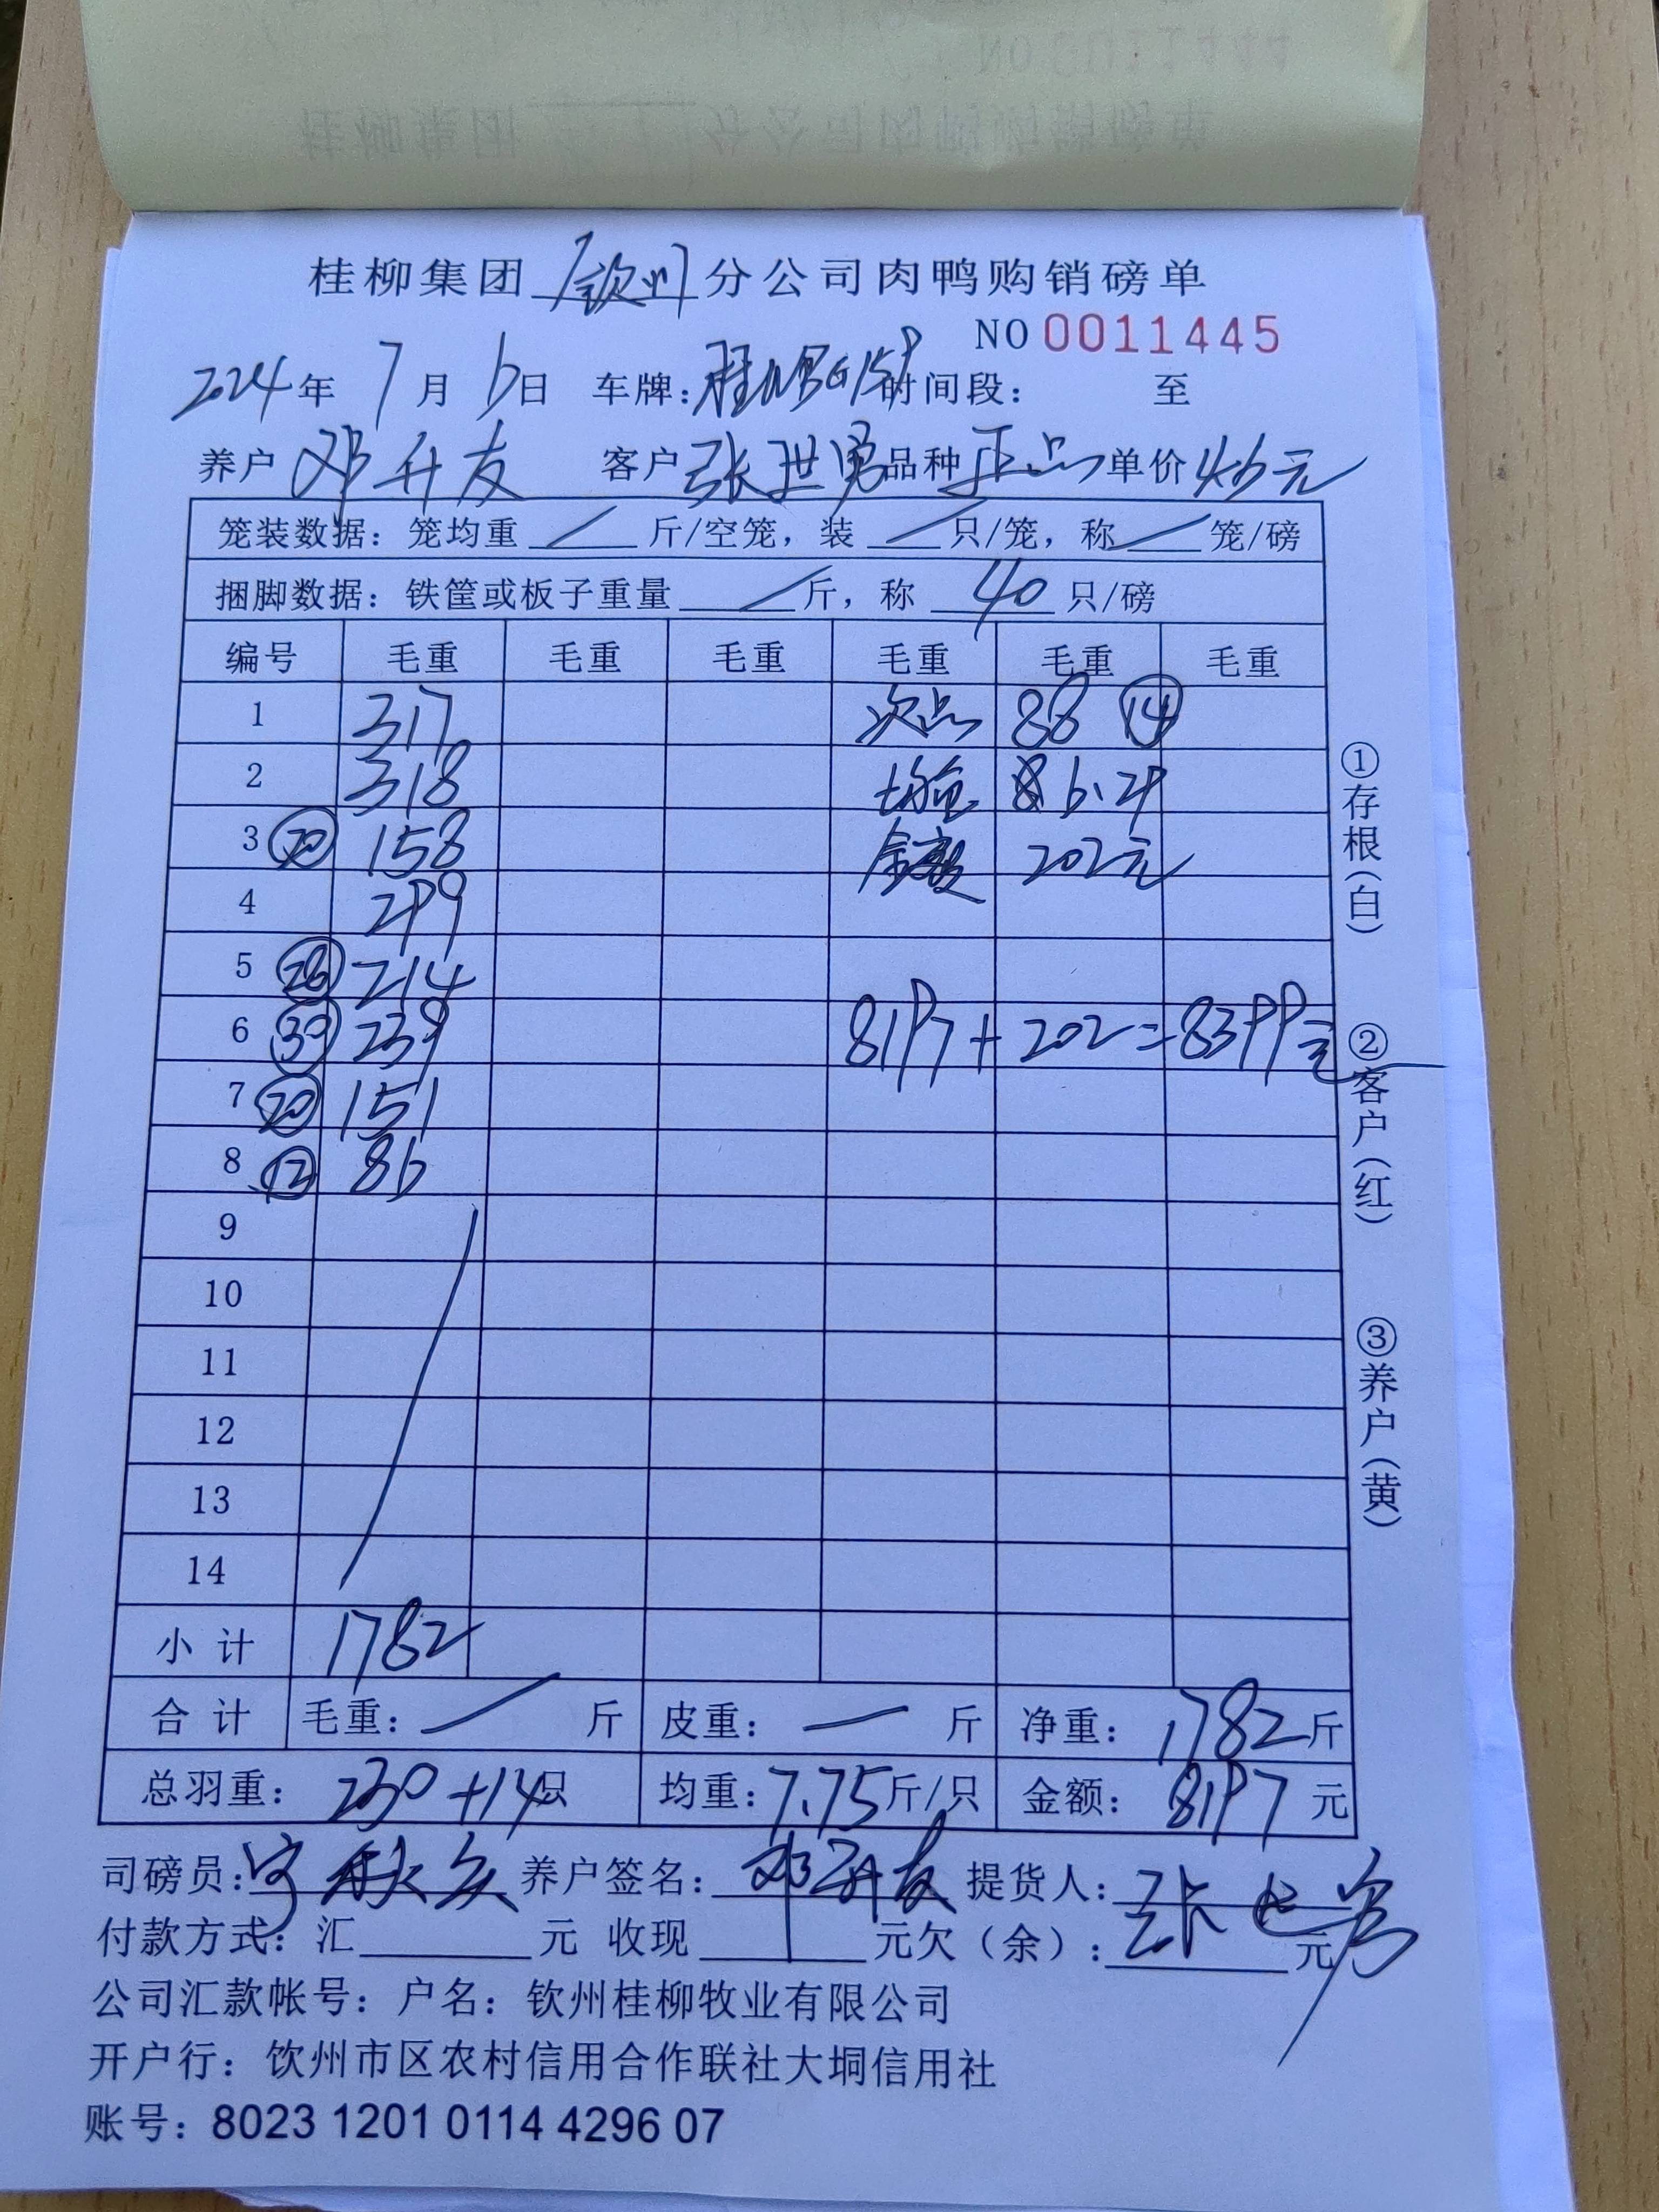 桂柳集团 钦州 分公司肉鸭购销磅单
NO 0011445
2024年 7月 6日 车牌: 时间段: 至
养户 邓升友 客户 张世勇 品种 正品 单价 4.6元
笼装数据: 笼均重 / 斤/空笼, 装 / 只/笼, 称 / 笼/磅
捆脚数据: 铁筐或板子重量 / 斤, 称 40 只/磅
编号 毛重 毛重 毛重 毛重 毛重 毛重
1 317 次品 88 14
2 318 均重 6.29
3 20 158 金额 202元
4 299
5 28 214
6 30 239 8197+202=8399元
7 20 151
8 12 86
9
10
11
12
13
14
小计 1782
合计 毛重: 斤 皮重: 斤 净重: 1782斤
总羽重: 230+14只 均重: 7.75斤/只 金额: 8197 元
司磅员: 养户签名: 邓升友 提货人: 张世勇
付款方式: 汇 元 收现 元 欠(余): 元
公司汇款帐号: 户名: 钦州桂柳牧业有限公司
开户行: 钦州市区农村信用合作联社大垌信用社
账号: 8023 1201 0114 4296 07
①存根(白)
②客户(红)
③养户(黄)